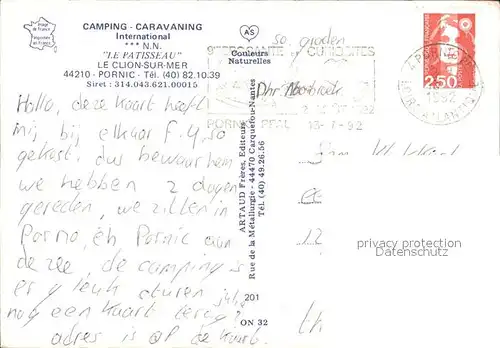 CAMPING - CARAVANING
International
*** N.N.
"LE PATISSEAU"
LE CLION-SUR-MER
44210 - PORNIC - Tél. (40) 82.10.39
Siret : 314.043.621.00015
AS
Couleurs
Naturelles
so graden
CURIOSITES
PORNIC
13-7-92
REPUBLIQUE FRANÇAISE
2,50
1992
Hallo, deze kaart heeft
mij bij elkaar f 4,50
gekost. dus bewaar hem
we hebben 2 dagen
gereden, we zitten in
Porno, eh Pornic aan
de zee, de camping is
erg leuk sturen jullie
nog een kaart terug?
adres is op de kaart.
ARTAUD Frères, Editeurs
Rue de la Métallurgie - 44470 Carquefou-Nantes
Tél. (40) 49.26.56
201
ON 32
privacy protection
Datenschutz